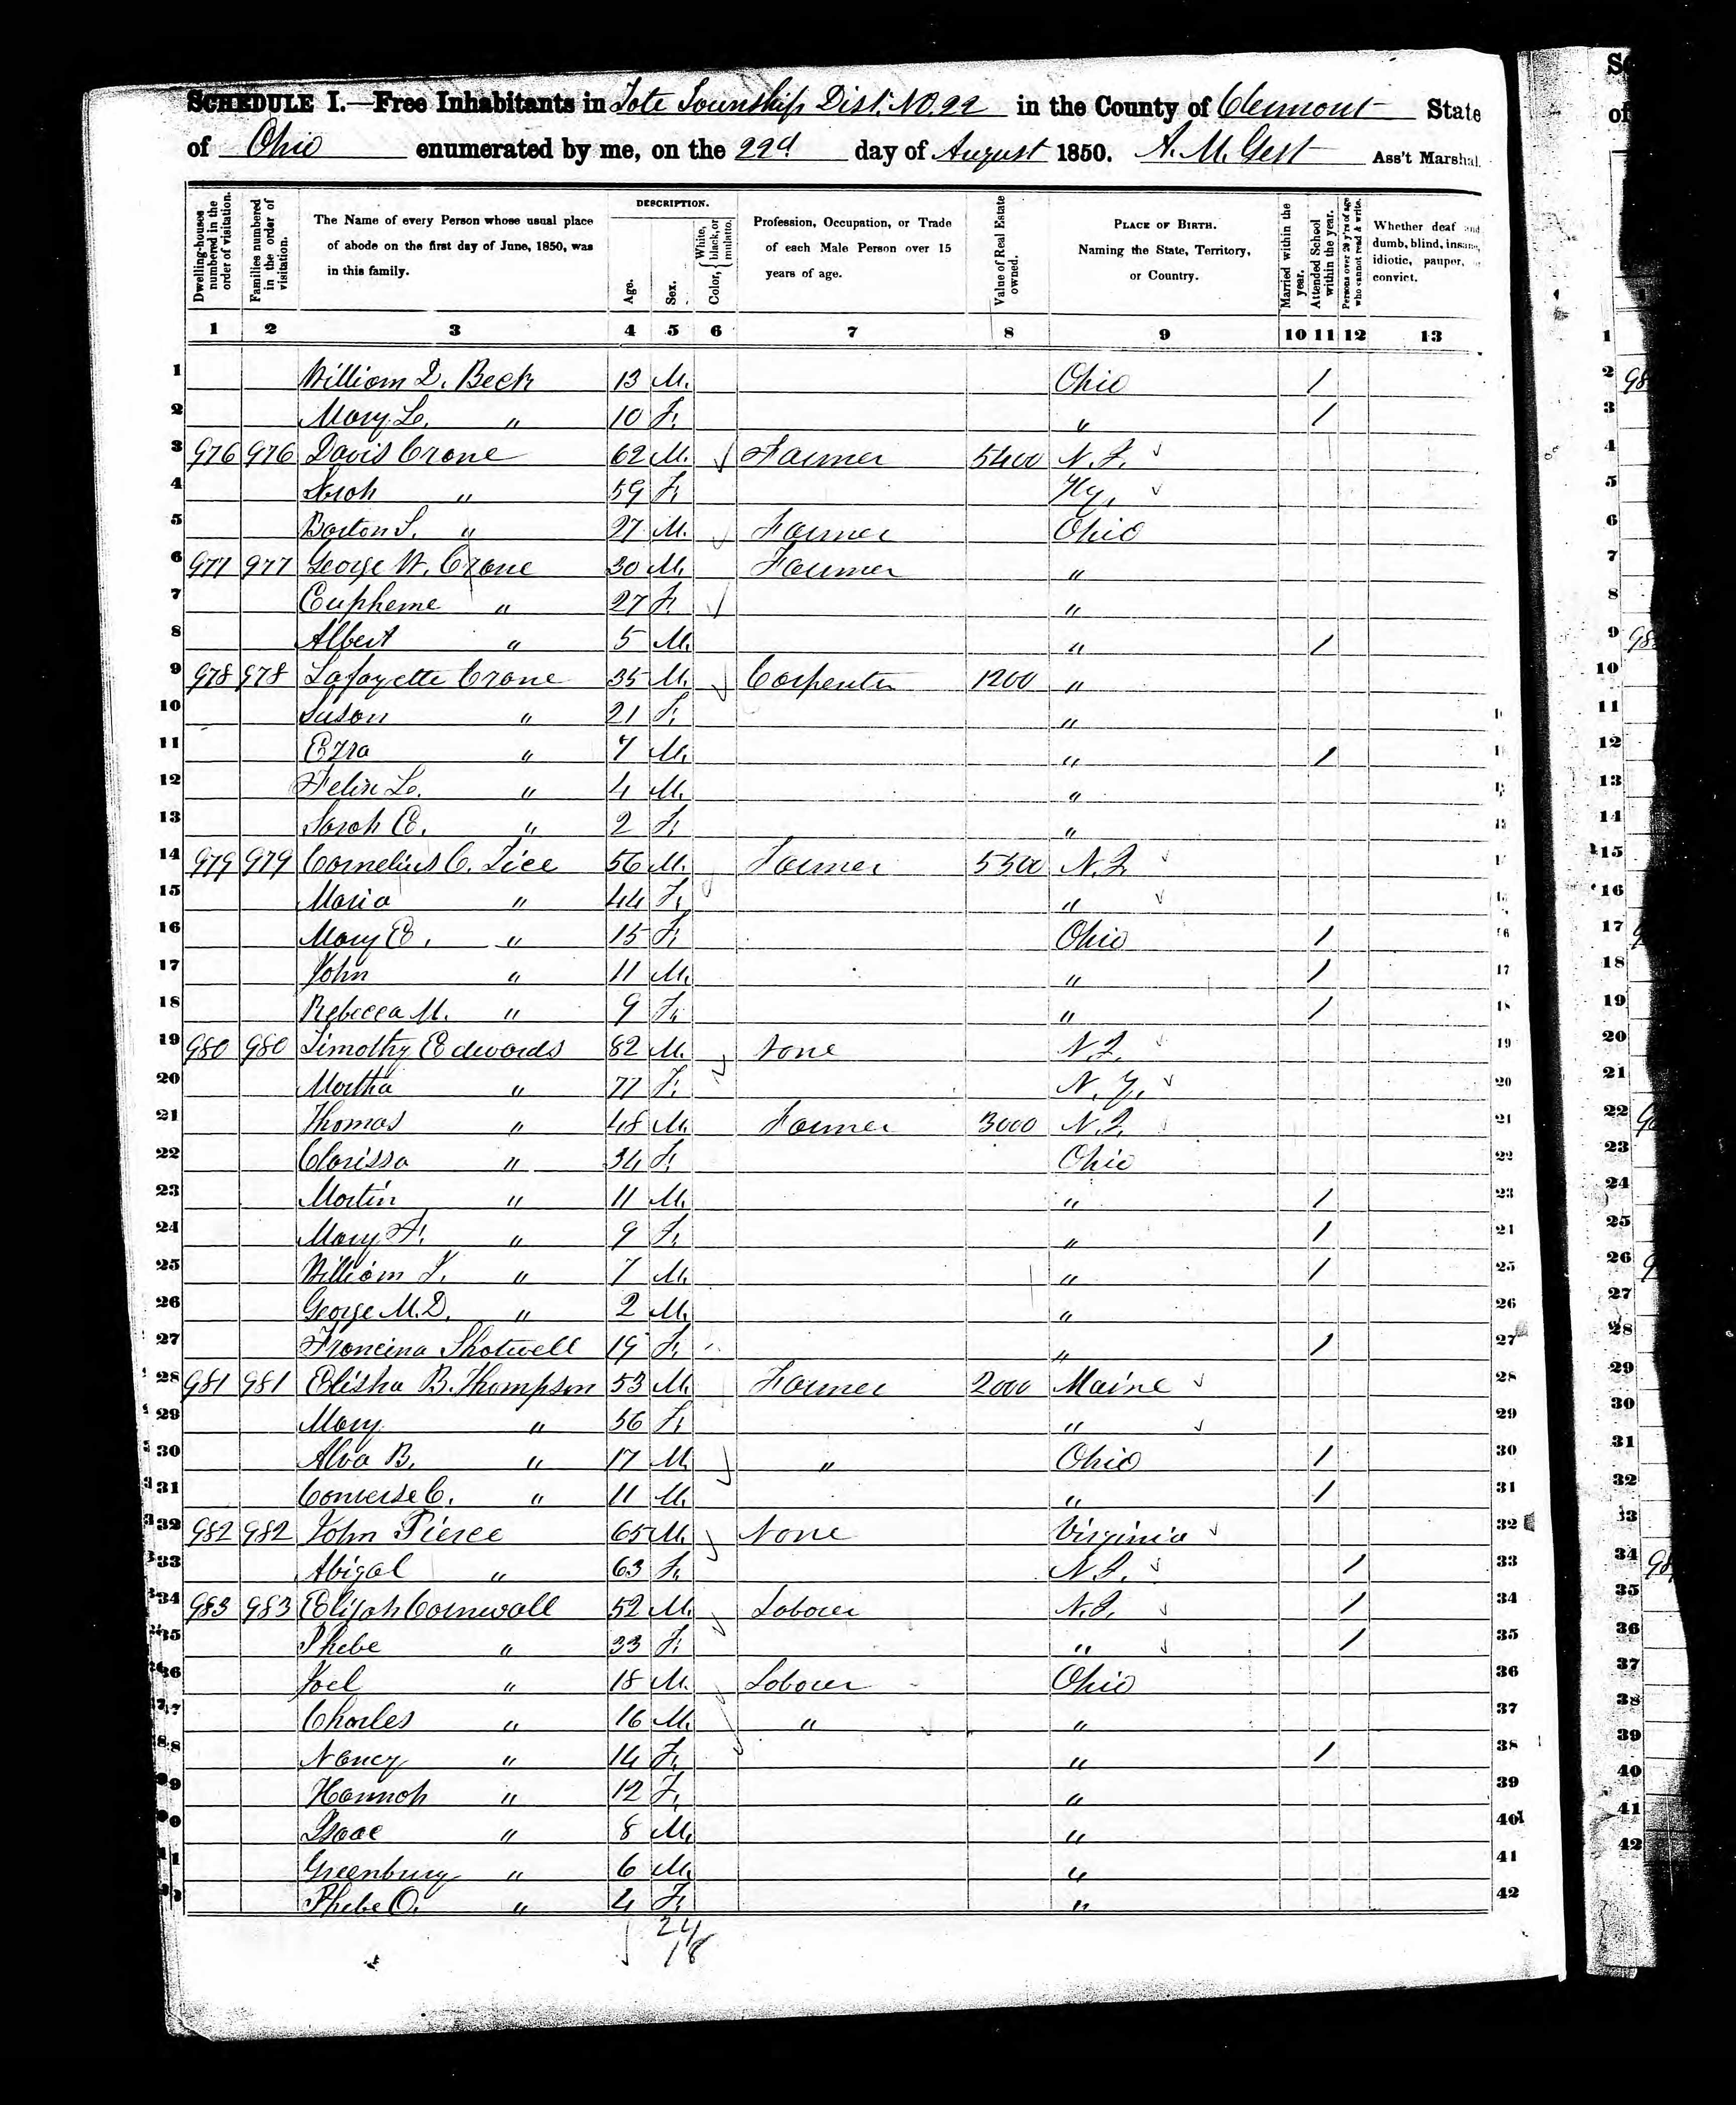 SCHEDULE I.—Free Inhabitants in Tote Township Dist. NO. 22 in the County of Clermont State
of Ohio enumerated by me, on the 22d day of August 1850. A. M. Gest Ass't Marshal.
Dwelling-houses numbered in the order of visitation.
Families numbered in the order of visitation.
The Name of every Person whose usual place of abode on the first day of June, 1850, was in this family.
DESCRIPTION.
Age.
Sex.
Color, { White, black, or mulatto.
Profession, Occupation, or Trade of each Male Person over 15 years of age.
Value of Real Estate owned.
PLACE OF BIRTH. Naming the State, Territory, or Country.
Married within the year.
Attended School within the year.
Persons over 20 y'rs of age who cannot read & write.
Whether deaf and dumb, blind, insane, idiotic, pauper, or convict.
1 2 3 4 5 6 7 8 9 10 11 12 13
1 William D. Beck 13 M. Ohio /
2 Mary L. " 10 F. " /
3 976 976 Davis Crane 62 M. Farmer 5400 N. J.
4 Sarah " 59 F. Ky.
5 Barton S. " 27 M. Farmer Ohio
6 977 977 George W. Crane 30 M. Farmer "
7 Eupheme " 27 F. "
8 Albert " 5 M. " /
9 978 978 Lafayette Crane 35 M. Carpenter 1200 "
10 Susan " 21 F. "
11 Ezra " 7 M. " /
12 Felix L. " 4 M. "
13 Sarah E. " 2 F. "
14 979 979 Cornelius C. Tice 56 M. Farmer 5500 N. J.
15 Maria " 44 F. "
16 Mary E. " 15 F. Ohio /
17 John " 11 M. " /
18 Rebecca M. " 9 F. " /
19 980 980 Timothy Edwards 82 M. None N. J. 19
20 Martha " 77 F. N. Y. 20
21 Thomas " 48 M. Farmer 3000 N. J. 21
22 Clarissa " 34 F. Ohio 22
23 Martin " 11 M. " / 23
24 Mary F. " 9 F. " / 24
25 William J. " 7 M. " / 25
26 George M. D. " 2 M. " 26
27 Francina Shotwell 19 F. " / 27
28 981 981 Elisha B. Thompson 53 M. Farmer 2000 Maine 28
29 Mary " 56 F. " 29
30 Alva B. " 17 M. " Ohio / 30
31 Converse C. " 11 M. " / 31
32 982 982 John Pierce 65 M. None Virginia 32
33 Abigal " 63 F. N. J. / 33
34 983 983 Elijah Cornwall 52 M. Laborer N. J. / 34
35 Phebe " 33 F. " / 35
36 Joel " 18 M. Laborer Ohio 36
37 Charles " 16 M. " " 37
38 Nancy " 14 F. " / 38
39 Hannah " 12 F. " 39
40 Isaac " 8 M. " 40
41 Greenbury " 6 M. " 41
42 Phebe O. " 4 F. " 42
24
18